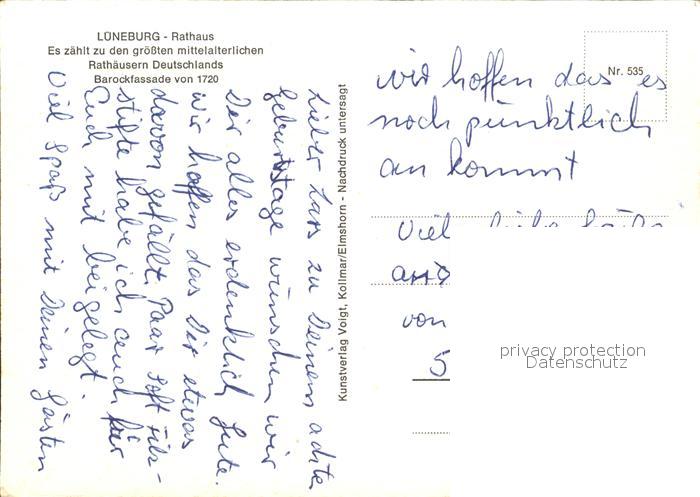 LÜNEBURG - Rathaus
Es zählt zu den größten mittelalterlichen
Rathäusern Deutschlands
Barockfassade von 1720
Lieber Lars zu Deinem achten
Geburtstage wünschen wir
Dir alles erdenklich Gute.
wir hoffen das Dir etwas
davon gefällt. Paar Soft Filz-
stifte habe ich auch für
Euch mit beigelegt.
Viel Spaß mit Deinen Gästen
Kunstverlag Voigt, Kollmar/Elmshorn - Nachdruck untersagt
Nr. 535
wir hoffen das es
noch pünktlich
an kommt
Viel
von
5
privacy protection
Datenschutz